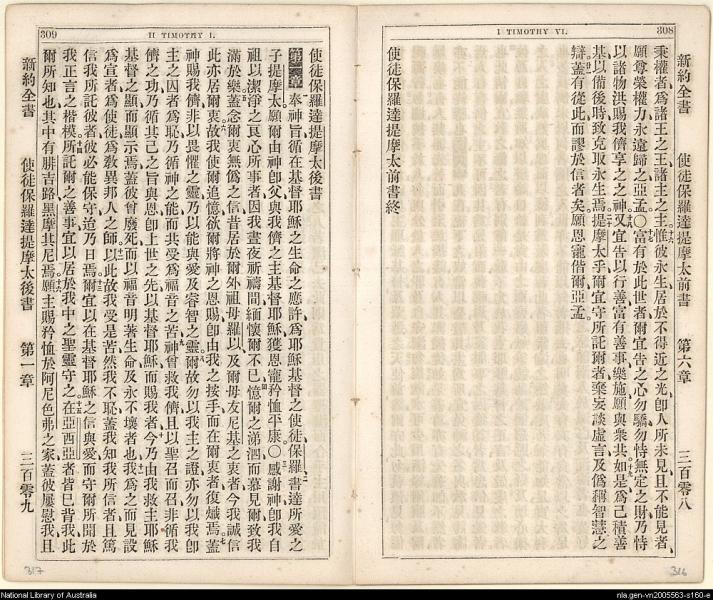 308
I TIMOTHY VI.
新約全書 使徒保羅達提摩太前書 第六章 三百零八
秉權者、爲諸王之王、諸主之主、惟彼永生、居於不得近之光、卽人所未見、且不能見者、
願尊榮權力、永遠歸之、亞孟。〇富有於此世者、爾宜告之、心勿驕、勿恃無定之財、乃恃
以諸物洪賜我儕享之之神、又宜告以行善、富有善事、樂施、願與衆共、如是爲己積善
基、以備後時、致克取永生焉。提摩太乎、爾宜守所託爾者、棄妄談虛言、及僞稱智慧之
辯、蓋有從此而謬於信者矣、願恩寵偕爾、亞孟。
使徒保羅達提摩太前書終
309
II TIMOTHY I.
使徒保羅達提摩太後書
第一章 奉神旨、循在基督耶穌之生命之應許、爲耶穌基督之使徒保羅、書達所愛之
子提摩太、願爾由神卽父、與我儕之主基督耶穌、獲恩寵矜恤平康。〇感謝神、卽我自
祖以潔淨之良心所事者、因我晝夜祈禱間、緬懷爾不已、憶爾之涕泗、而慕見爾、致我
滿於樂、蓋念爾衷無僞之信、昔居於爾外祖母羅以、及爾母友尼基之衷者、今我誠信
此亦居爾衷、故我使爾追憶、欲爾將神之恩賜、卽由我之按手而在爾衷者、復熾焉、蓋
神賜我儕、非以畏懼之靈、乃以能與愛及睿智之靈、爾故勿以我主之證、亦勿以我卽
主之囚者爲恥、乃循神之能、而共受爲福音之苦、神曾救我儕、且以聖召而召、非循我
儕之功、乃循其己之旨與恩、卽上世之先、以基督耶穌而賜我者、今乃由我救主耶穌
基督之顯而顯示焉、蓋彼曾廢死、而以福音明著生命及永不壞者也、我爲之而見設
爲宣者、爲使徒、爲敎異邦人之師、以此故我受是苦、然我不恥、蓋我知我所信者、且篤
信我所託彼者、彼必能保守、迨乃日焉、爾宜以在基督耶穌之信與愛、而守爾所聞於
我正言之楷模、所託爾之善事、宜以居於我中之聖靈守之。在亞西亞者、皆已背我、此
爾所知也、其中有腓吉路、黑摩其尼焉、願主賜矜恤於阿尼色弗之家、蓋彼屢慰我、且
新約全書 使徒保羅達提摩太後書 第一章 三百零九
317
316
National Library of Australia
nla.gen-vn2005563-s160-e